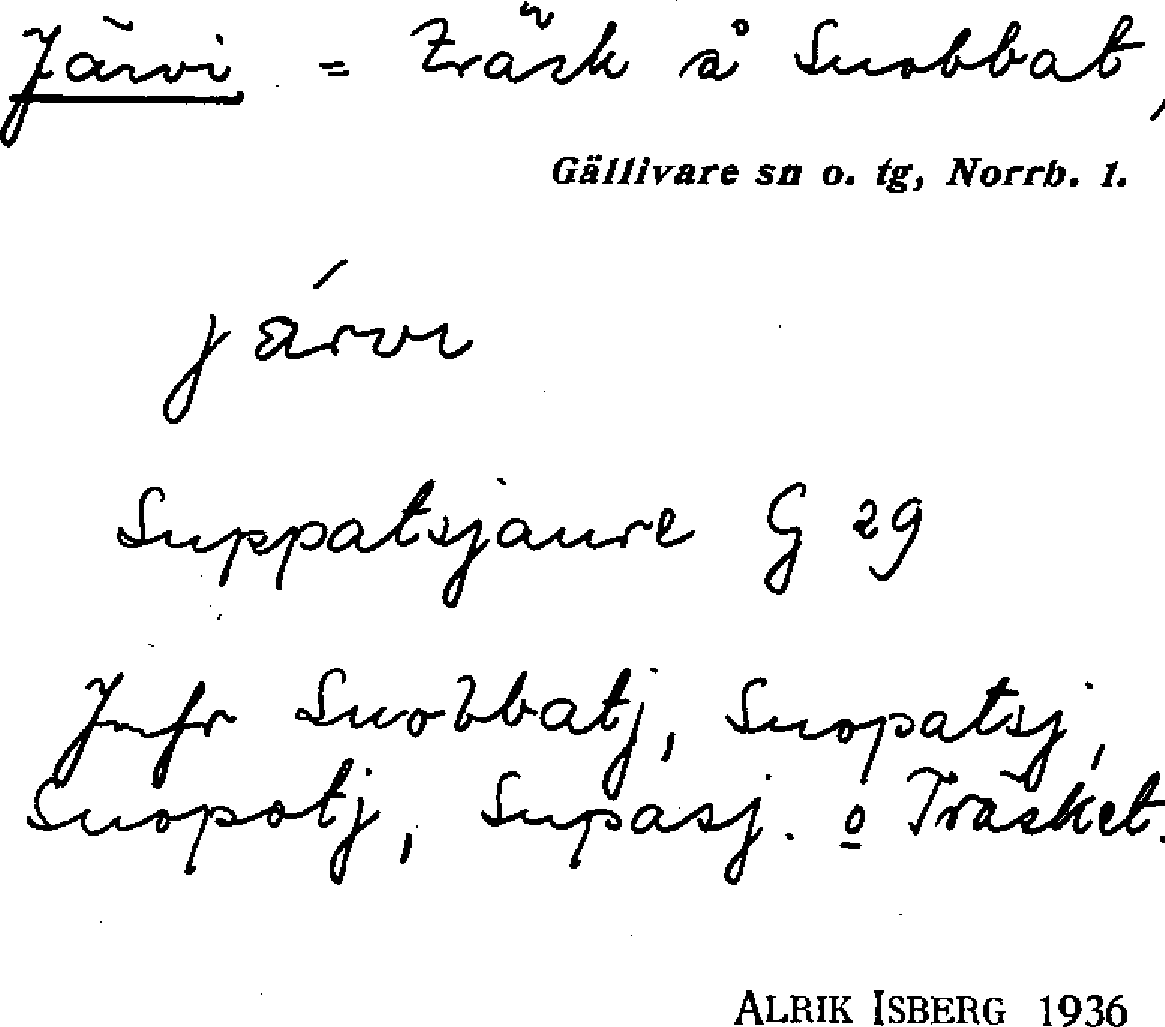 Järvi = Träsk å Suobbat,
Gällivare sn o. tg, Norrb. 1.
járvi
Suppatsjaure G 29
Jmfr Suobbatj, Suopatsj,
Suopotj, Supasj. o Träsket.
ALRIK ISBERG 1936